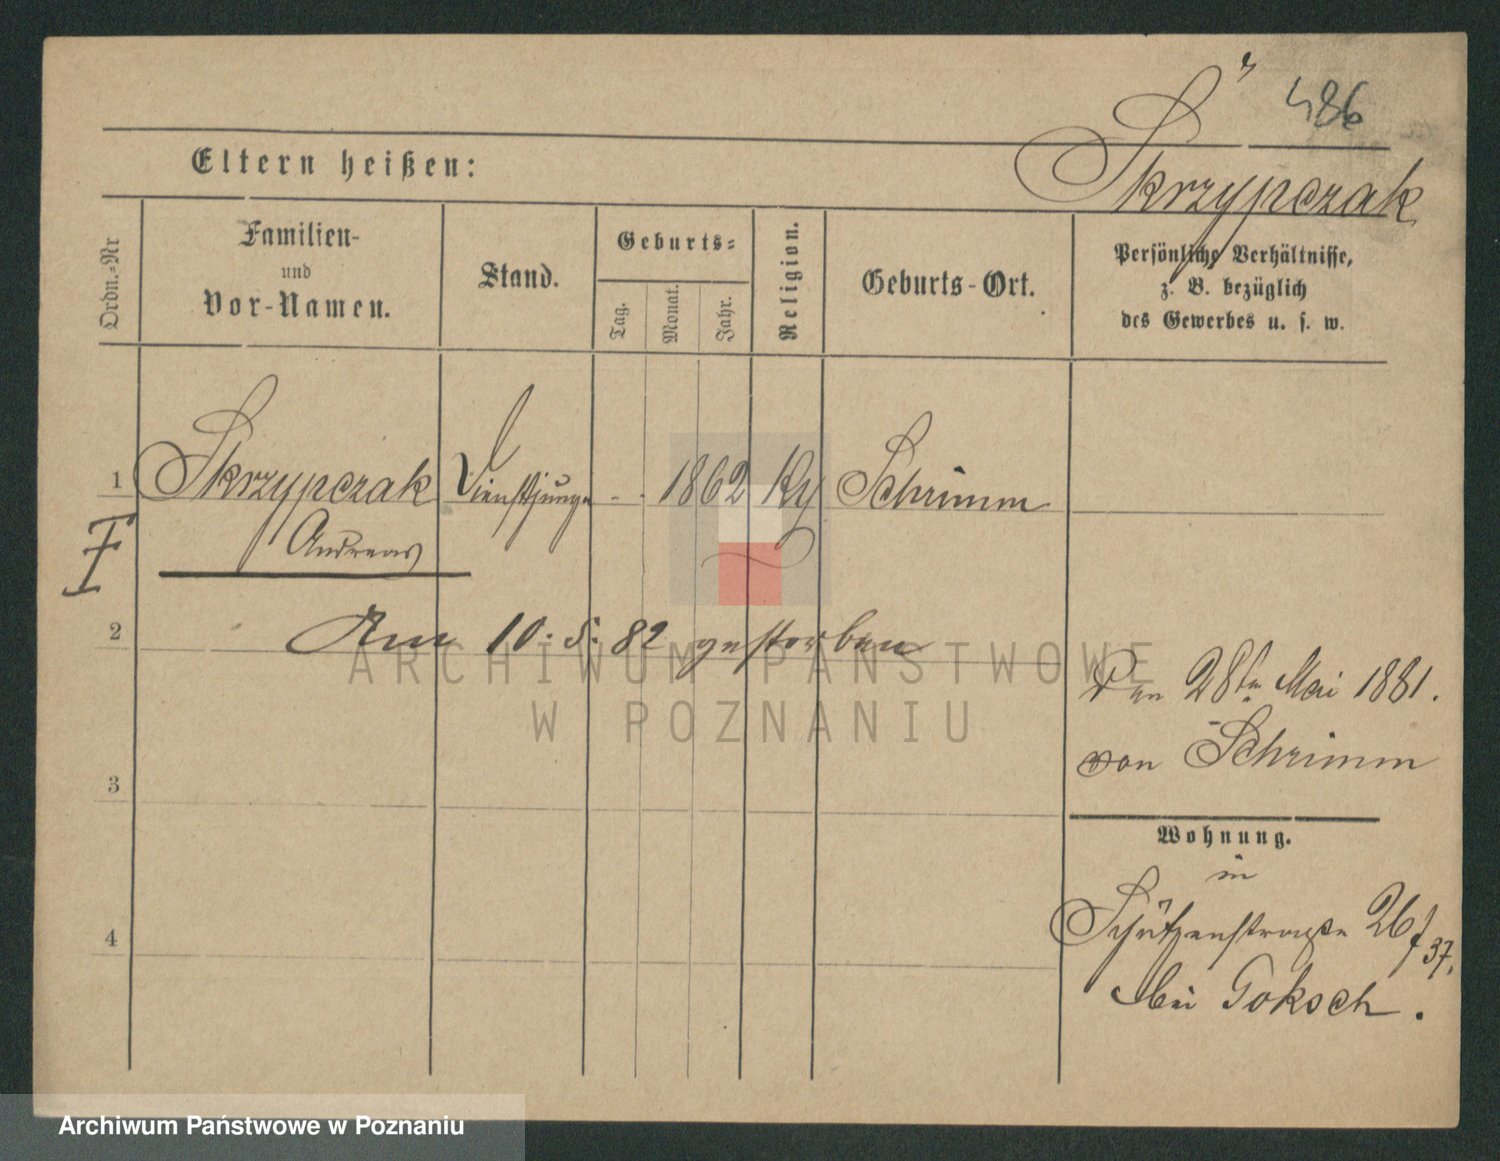 486
Skrzypczak
Eltern heißen:
Ordn.-Nr
Familien-
und
Vor-Namen.
Stand.
Geburts-
Tag.
Monat.
Jahr.
Religion.
Geburts-Ort.
Persönliche Verhältnisse,
z. B. bezüglich
des Gewerbes u. s. w.
1 Skrzypczak Dienstjunge - - 1862 Schrimm
Andreas
F
2 Am 10. 5. 82 gestorben
Den 28ten Mai 1881.
von Schrimm
3
Wohnung.
in
Schützenstraße 26/37.
4
bei Goksch.
ARCHIWUM PAŃSTWOWE
W POZNANIU
Archiwum Państwowe w Poznaniu